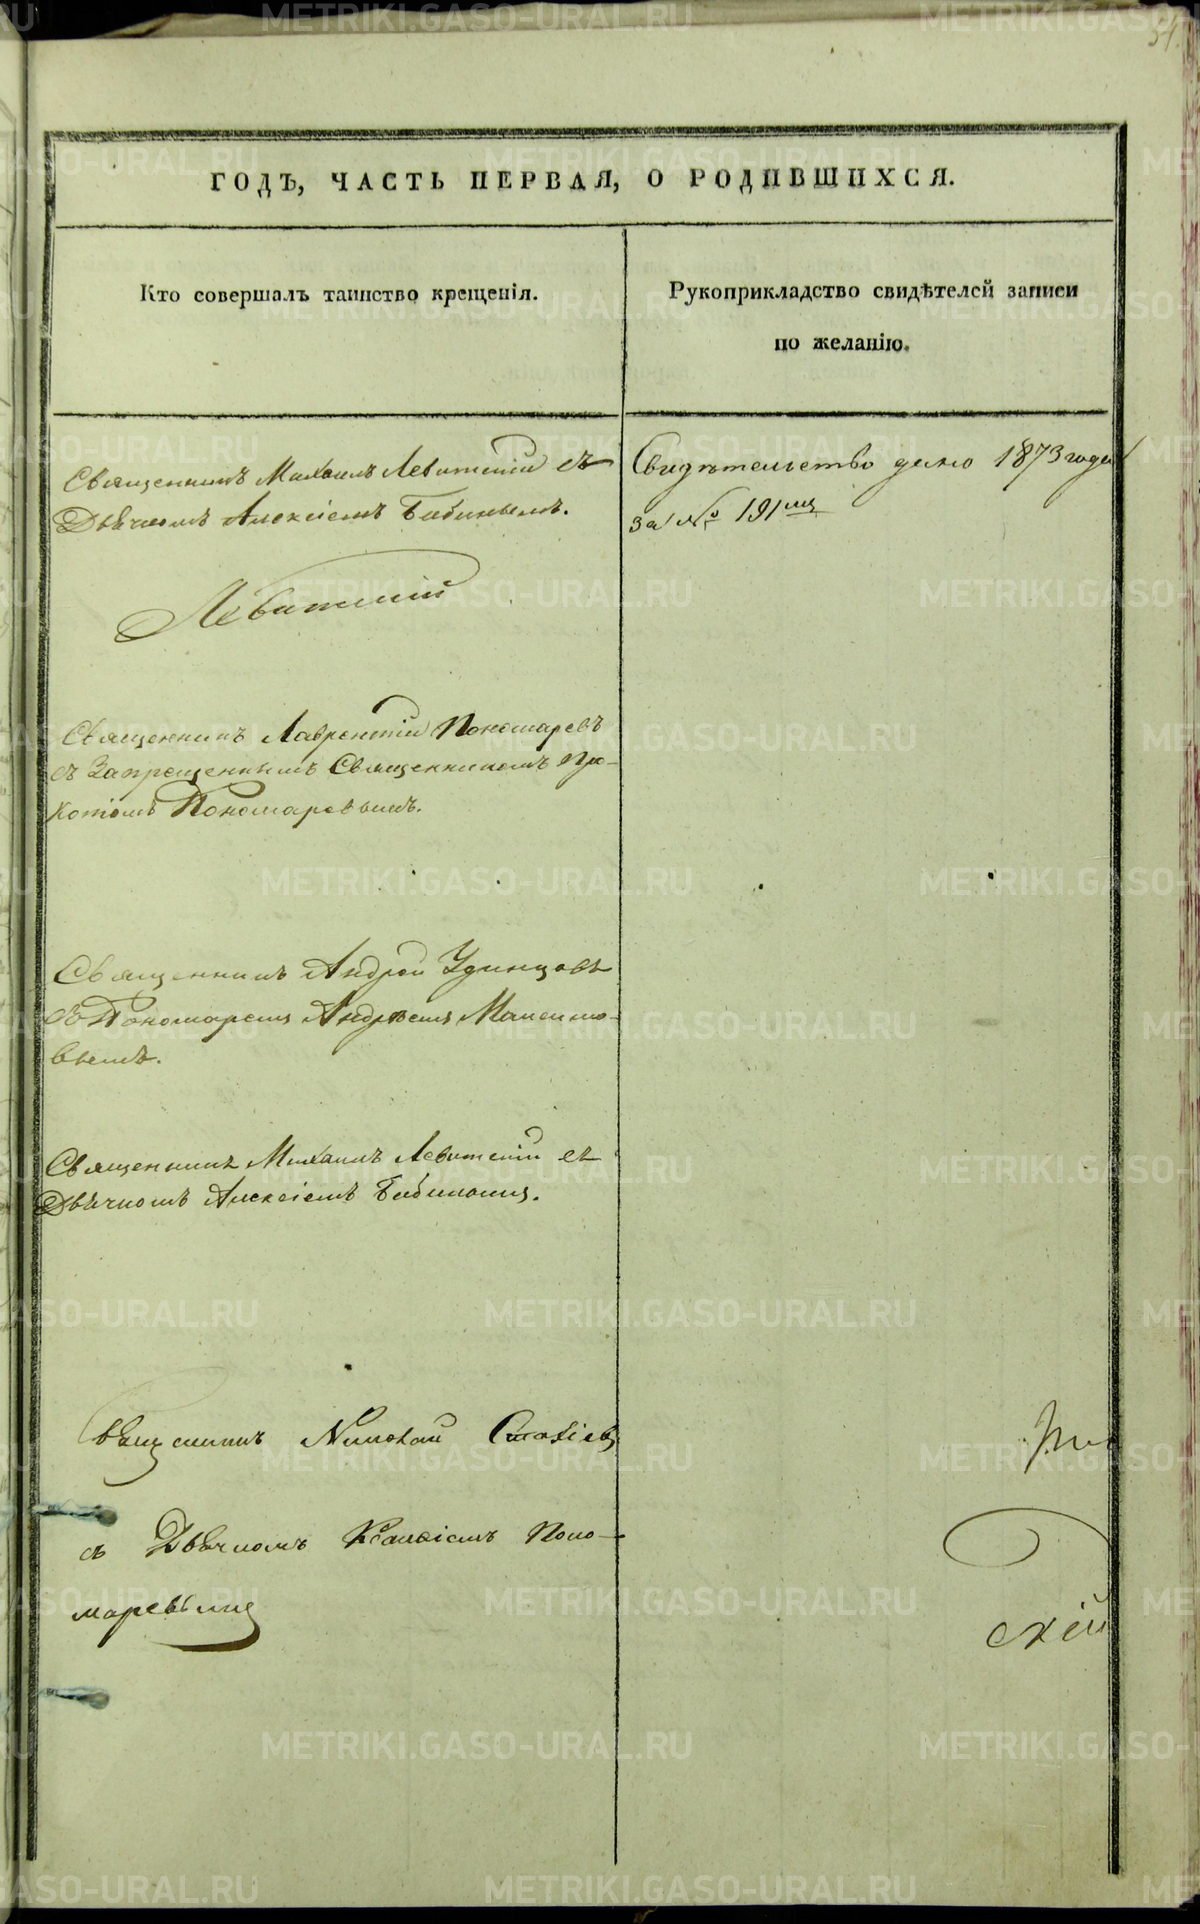 51.
ГОДЪ, ЧАСТЬ ПЕРВАЯ, О РОДИВШИХСЯ.
Кто совершалъ таинство крещенія.
Рукоприкладство свидѣтелей записи
по желанію.
Священникъ Михаилъ Левитскій съ
Дьячкомъ Алексіемъ Бабинымъ.
Левитскій
Свидѣтельство дано 1873 года
за № 191мъ
Священникъ Лаврентій Пономаревъ
съ Запрещеннымъ Священникомъ Про-
копіемъ Пономаревымъ.
Священникъ Андрей Удинцовъ
съ Пономаремъ Андреемъ
вымъ.
Священникъ Михаилъ Левитскій съ
Дьячкомъ Алексіемъ
Священникъ Николай
съ Дьячкомъ Поно-
маревымъ
скій
METRIKI.GASO-URAL.RU